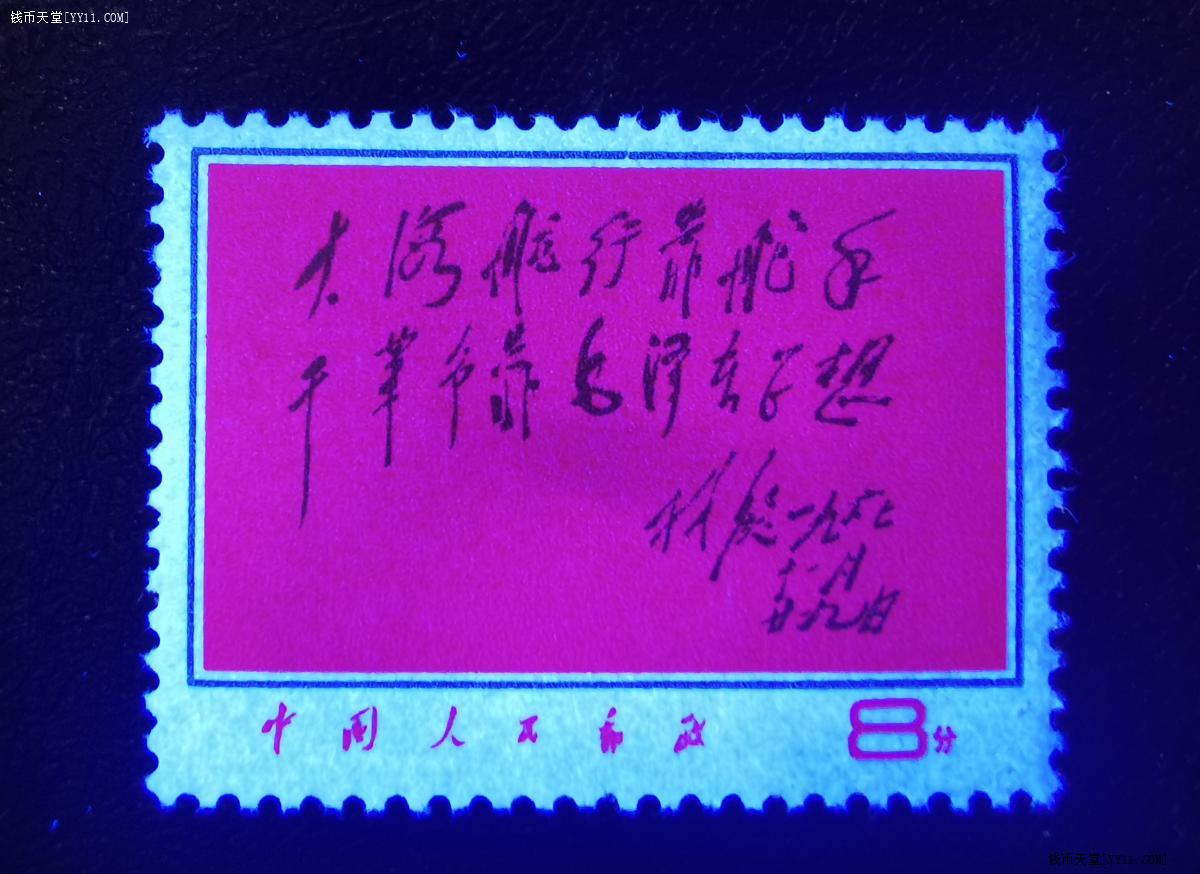 钱币天堂[YY11.COM]
大海航行靠舵手
干革命靠毛泽东思想
林彪一九六七
十一月
廿九日
中国人民邮政 8分
钱币天堂[YY11.COM]